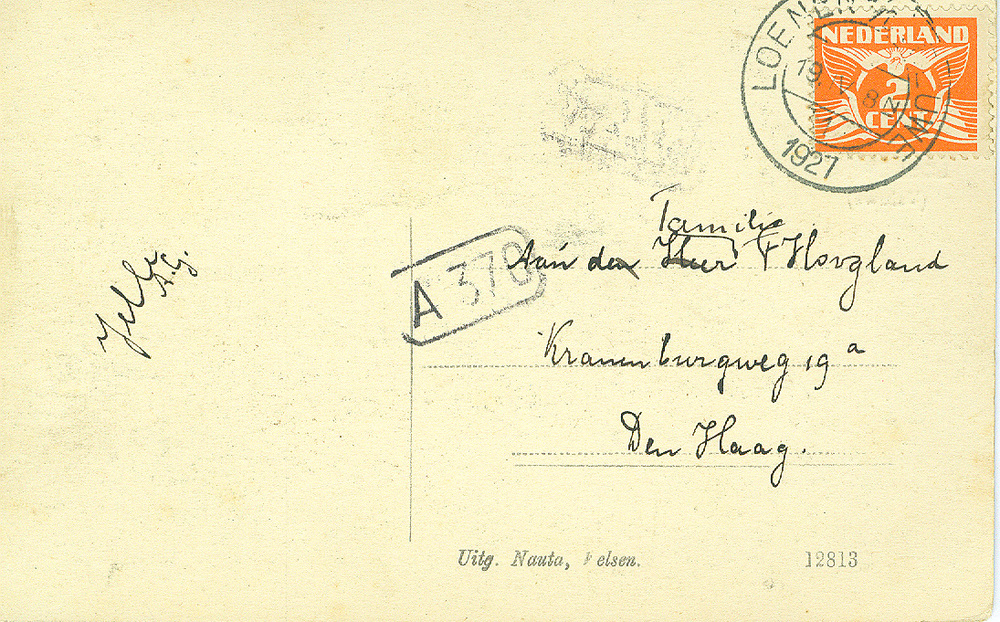 NEDERLAND
2
CENT
LOENEN
19. V 8 N
1927
A 370
Familie
Aan den Heer F Hoogland
Kranenburgweg 19 a
Den Haag.
Jelle
Uitg. Nauta, Velsen.
12813